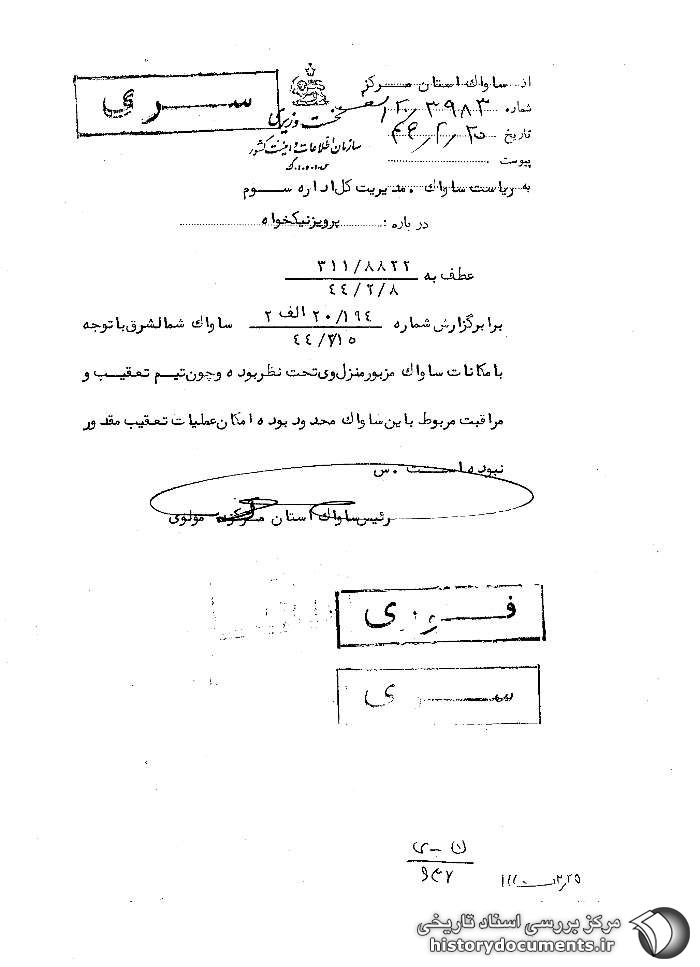 سری
از ساواك استان مركز
شماره ۳۹۸۳/ ۲۰ الف
تاریخ ۴۴/۲/۲۰
پیوست
نخست وزیری
سازمان اطلاعات و امنیت کشور
س.ا.و.ا.ک
به ریاست ساواك . مدیریت کل اداره سوم
در باره : پرویز نیکخواه
عطف به ۳۱۱/۸۸۲۲
۴۴/۲/۸
برابر گزارش شماره ۲۰/۱۹٤ الف ۲ ساواك شمالشرق با توجه
بامکانات ساواك مزبور منزل وی تحت نظر بوده و چون تیم تعقیب و
مراقبت مربوط باین ساواك محدود بوده امکان عملیات تعقیب مقدور
نبوده است . س
رئیس ساواك استان مرکز . مولوی
فوری
سری
مرکز بررسی اسناد تاریخی
historydocuments.ir